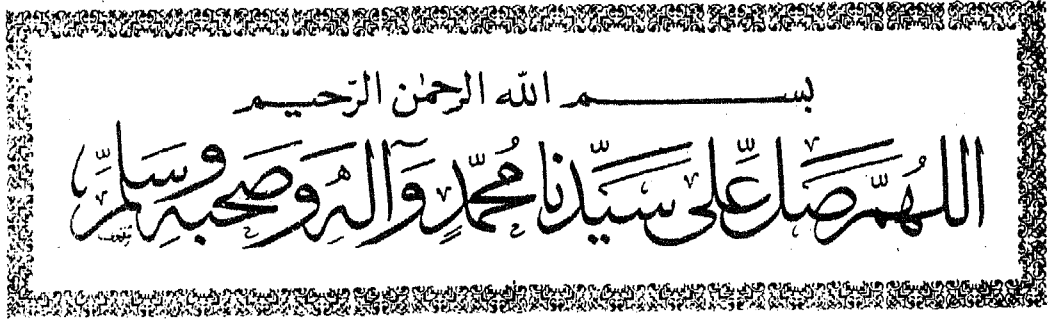 بسم الله الرحمٰن الرّحيم
اللهُمَّ صَلِّ عَلى سَيِّدِنا مُحمّدٍ وَآلِهِ وَصَحبِهِ وَسَلِّم